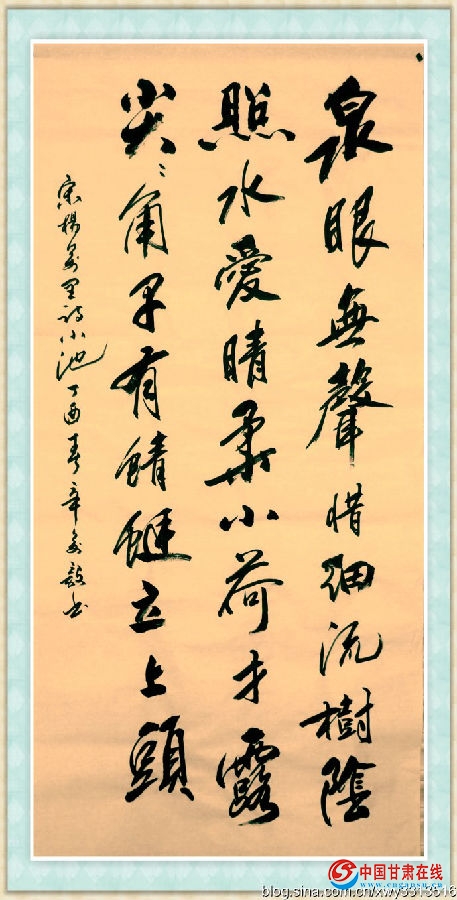 泉眼無聲惜細流樹陰
照水愛晴柔小荷才露
尖々角早有蜻蜓立上頭
宋楊萬里詩小池 丁酉春
中国甘肃在线
blog.sina.com.cn/xwy3313516